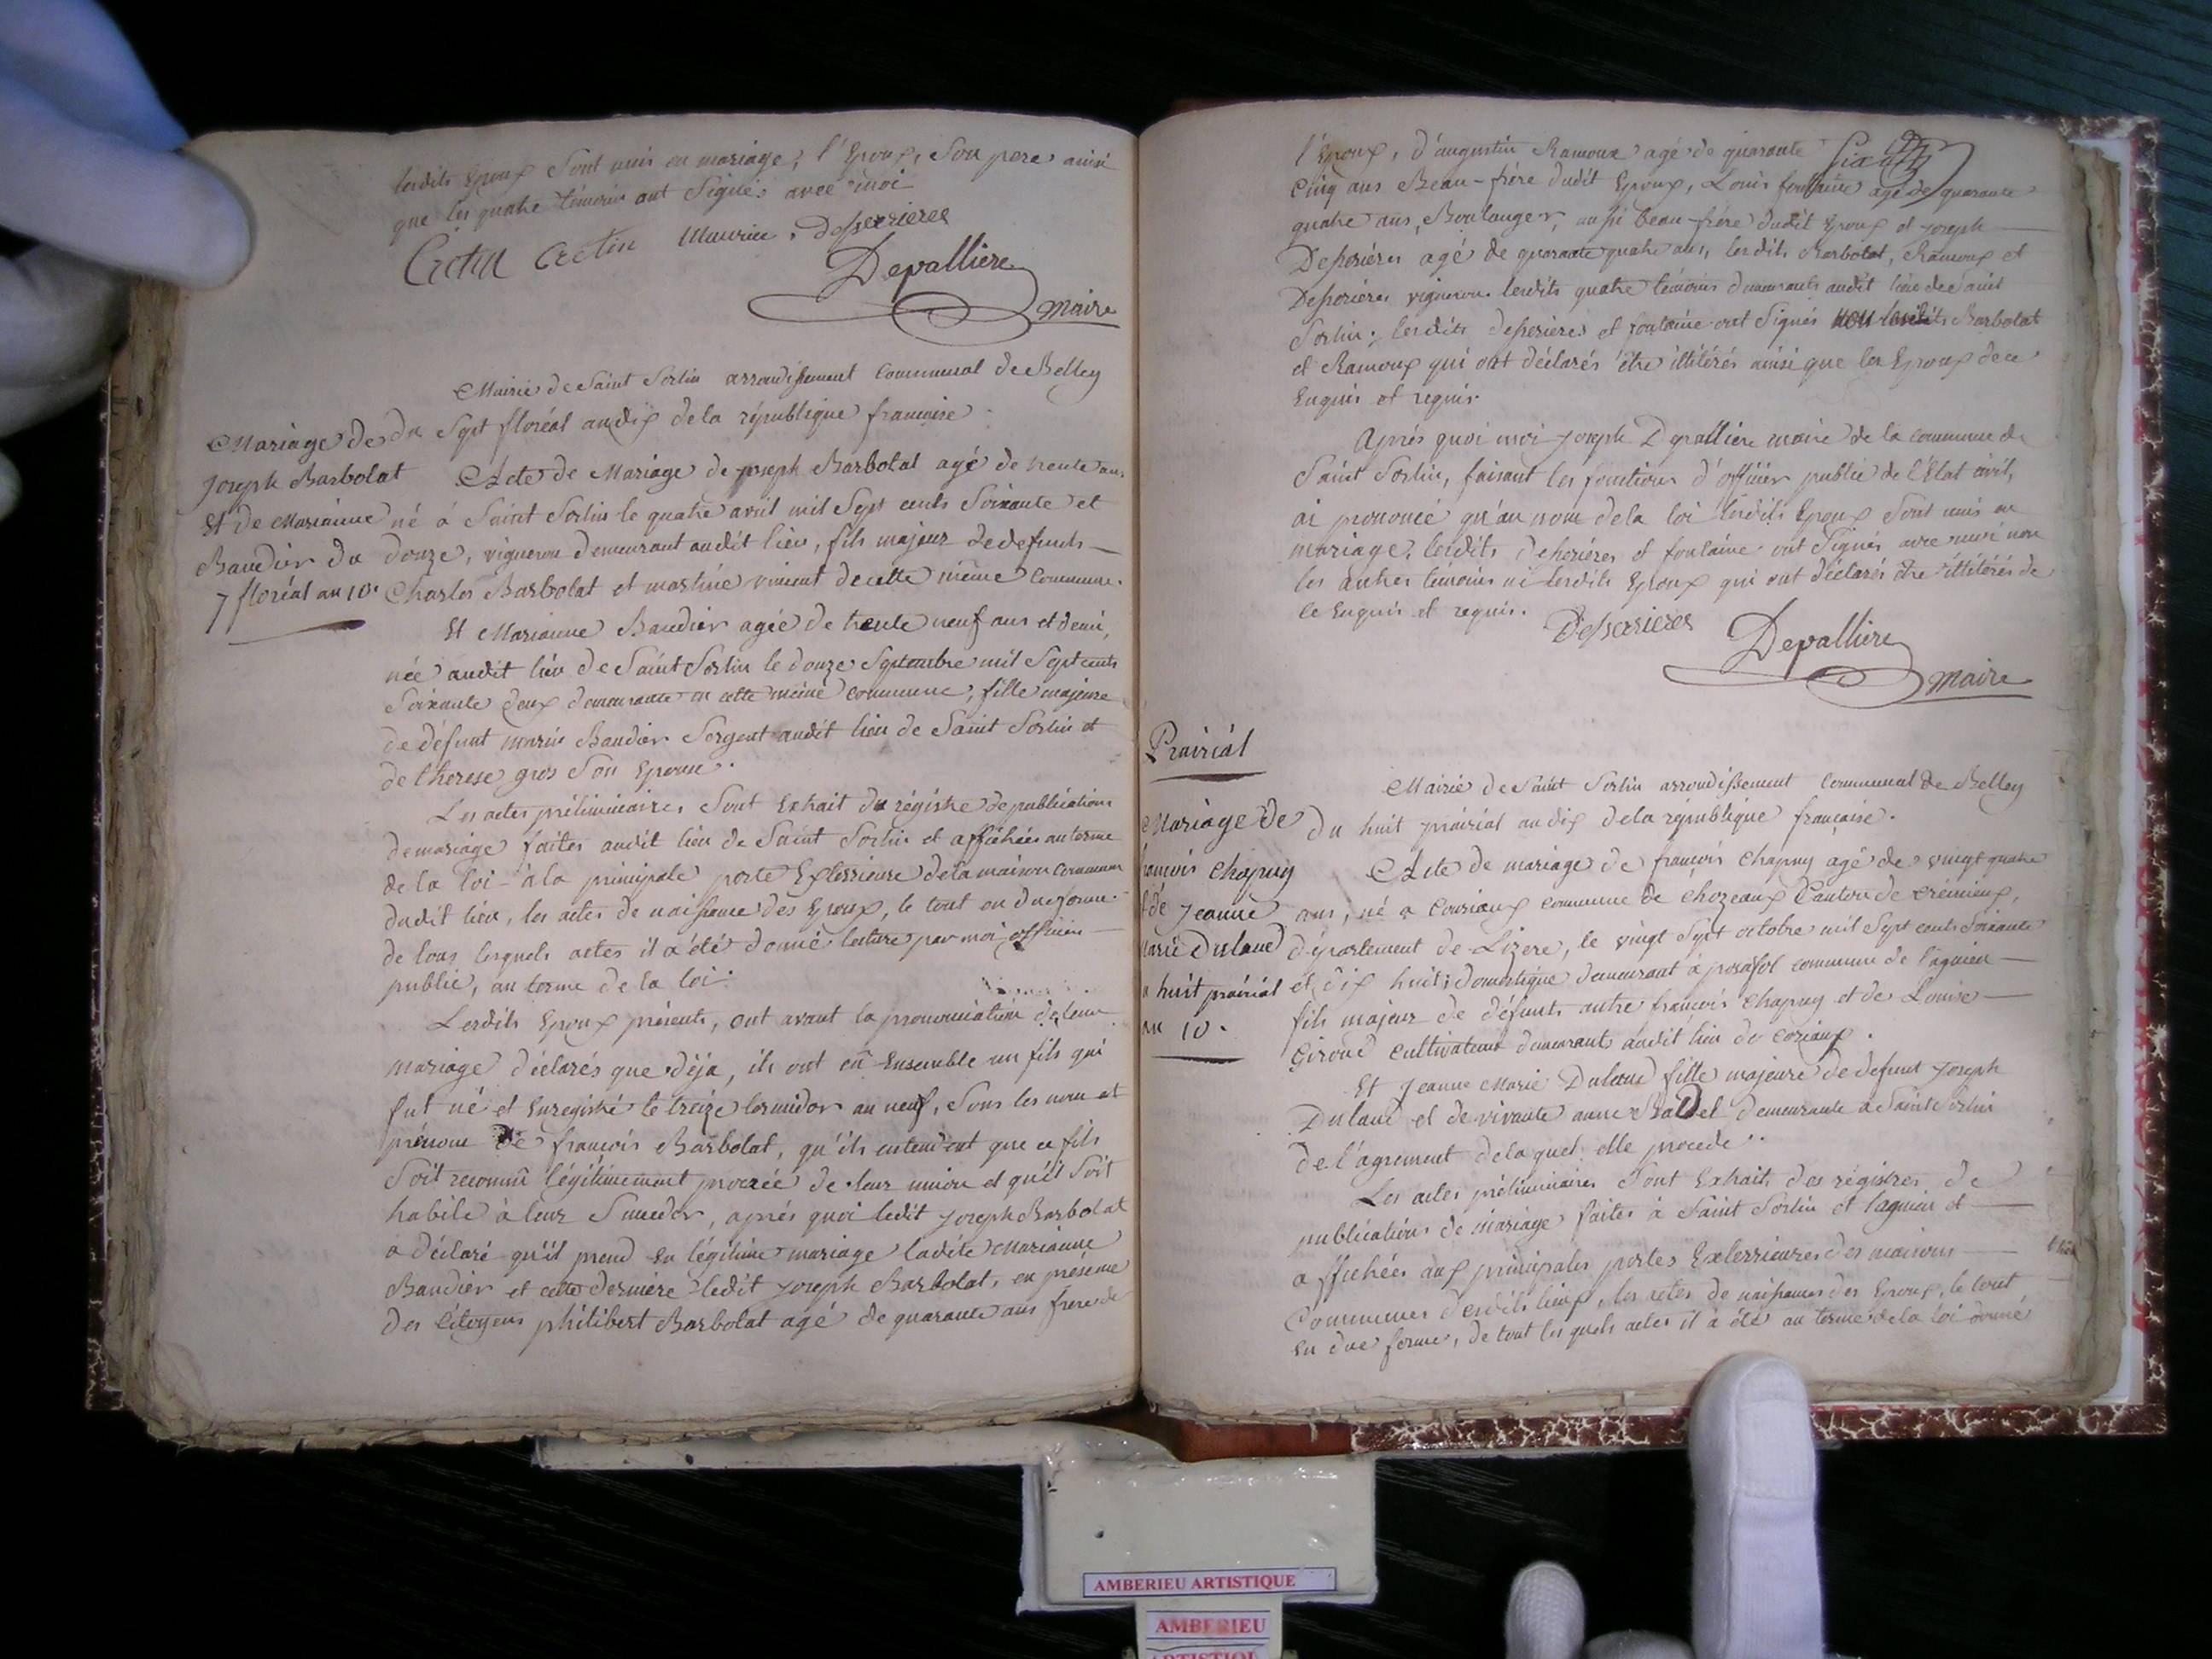 lesdits Epoux sont unis en mariage; l'Epoux, son pere ainsi
que les quatre témoins ont signés avec moi
Cretin Cretin Maurice. Desserieres
Depalliere
maire
Mairie de Saint Sorlin arrondissement communal de Belley
du sept floréal an dix de la république francaise.
Mariage de
Joseph Barbolat
Et de Marianne
Baudier du
7 floréal an 10.
Acte de Mariage de joseph Barbolat agé de trente ans
né à Saint Sorlin le quatre avril mil Sept cents Soixante et
douze, vigneron demeurant audit lieu, fils majeur de defunts
Charles Barbolat et martine vincent de cette même commune.
Et Marianne Baudier agée de trente neuf ans et demi,
née audit lieu de Saint Sorlin le douze Septembre mil Sept cents
Soixante deux demeurante en cette même commune, fille majeure
de défunt marin Baudier Sergent audit lieu de Saint Sorlin et
de therese gros son Epouse.
Les actes préliminaires sont Extrait du régistre de publications
de mariage faites audit lieu de Saint Sorlin et affichées au terme
de la loi à la principale porte Extérieure de la maison commune
dudit lieu, les actes de naissance des Epoux, le tout en due forme
de tous lesquels actes il a été donné lecture par moi officier
public, au terme de la loi.
Lesdits Epoux présents, ont avant la prononciation de leur
mariage déclarés que déja, ils ont eû Ensemble un fils qui
fut né et Enregistré le treize termidor an neuf, Sous les nom et
prénom de françois Barbolat, qu'ils entendent que ce fils
soit reconnû légitimement procréé de leur union et qu'il soit
habile à leur Succeder, aprés quoi ledit joseph Barbolat
a déclaré qu'il prend en légitime mariage ladite Marianne
Baudier et cette derniere ledit joseph Barbolat, en présence
des Citoyens philibert Barbolat agé de quarante ans frere de
l'Epoux, d'augustin Ramoux agé de quarante
cinq ans Beau-frére dudit Epoux, Louis fontaine agé de quarante
quatre ans, Boulanger, aussi beau-frére dudit Epoux et joseph
Desserieres agé de quarante quatre ans, lesdits Barbolat, Ramoux et
Desserieres vignerons lesdits quatre témoins demeurants audit lieu de Saint
Sorlin; lesdits desserieres et fontaine ont signés non lesdits Barbolat
et Ramoux qui ont déclarés être illitérés ainsi que les Epoux de ce
Enquis et requis.
Aprés quoi moi joseph Depalliere maire de la commune de
Saint Sorlin, faisant les fonctions d'officier public de l'Etat civil,
ai prononcé qu'au nom de la loi lesdits Epoux sont unis en
mariage, lesdits desserieres et fontaine ont signés avec moi non
les autres témoins ni lesdits Epoux qui ont déclarés être illitérés de
ce Enquis et requis.
Desserieres
Depalliere
maire
Prairial
Mairie de Saint Sorlin arrondissement communal de Belley
du huit prairial an dix de la république française.
Mariage de
françois Chapuy
et de Jeanne
marie Duland
huit prairial
an 10.
Acte de mariage de françois Chapuy agé de vingt quatre
ans, né a Couriaux commune de Chozeaux Canton de Crémieux,
département de Lizere, le vingt sept octobre mil Sept cents Soixante
et dix huit; domestique demeurant à posafol commune de lagnieu
fils majeur de défunts autre françois Chapuy et de Louise
Giroud cultivateurs demeurants audit lieu de Coriaux.
Et Jeanne Marie Duland fille majeure de defunt Joseph
Duland et de vivante anne demeurante a Saint Sorlin
de l'agrement delaquel elle procede.
Les actes préliminaires sont Extraits des régistres de
publications de mariage faites à Saint Sorlin et lagnieu et
affichées aux principales portes Exterrieures des maisons
Communes desdits lieux, les actes de naissances des Epoux, le tout
en due forme, de tout les quels actes il à été au terme de la loi donné
AMBERIEU ARTISTIQUE
AMBERIEU
ARTISTIQUE